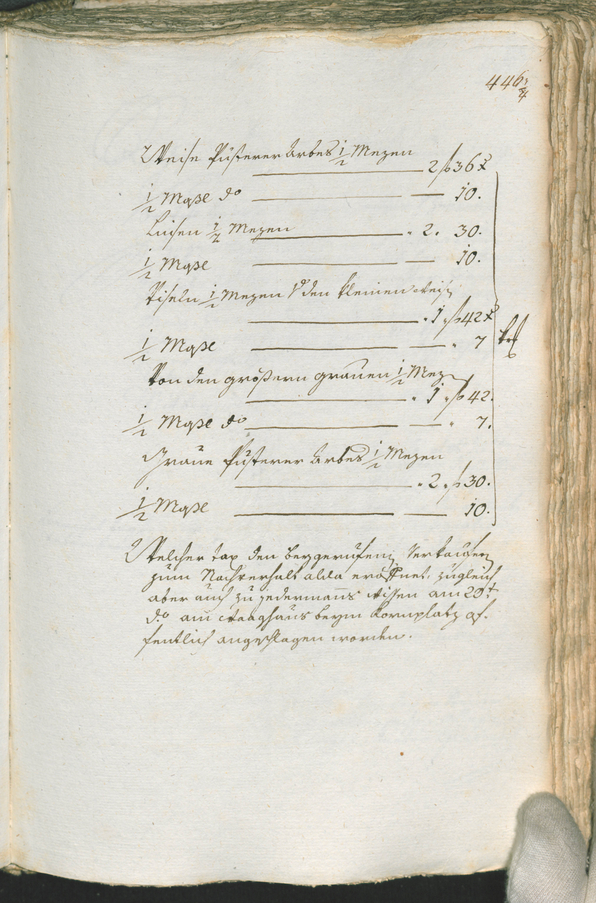 446
4
Weise Pusterer Arbes 1/2 Mezen
2 f 36 x
1/2 Masse do 10.
Linsen 1/2 Mezen 2. 30.
1/2 Masse 10.
Fisoln 1/2 Mezen den kleinen weis
1 f 42 x
1/2 Masse 7
Von den grössern grauen 1/2 Mez
1 f 42.
1/2 Masse do 7.
Graue Pusterer Arbes 1/2 Mezen
2 f 30.
1/2 Masse 10.
Welcher tax den beygerufenen Verkaufern
zum Nachverhalt alda eröffnet, zugleich
aber auch zu jedermans wissen am 20t
do am Waaghaus beym Kornplatz of-
fentlich angeschlagen worden.